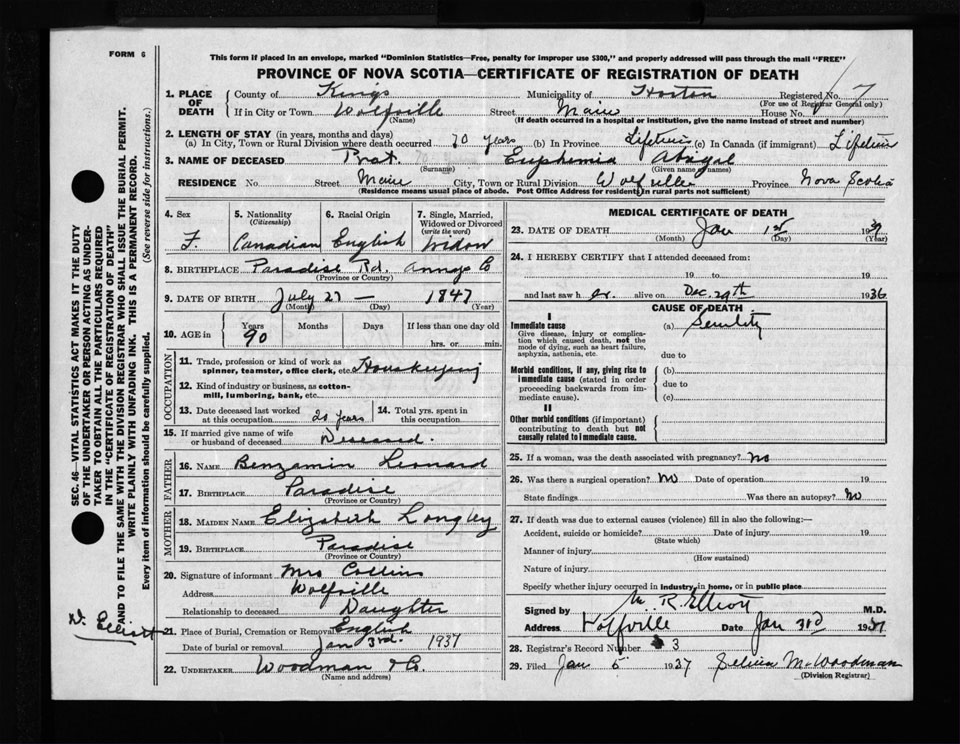 FORM 6
This form if placed in an envelope, marked "Dominion Statistics—Free, penalty for improper use $300," and properly addressed will pass through the mail "FREE"
PROVINCE OF NOVA SCOTIA—CERTIFICATE OF REGISTRATION OF DEATH
SEC. 46—VITAL STATISTICS ACT MAKES IT THE DUTY
OF THE UNDERTAKER OR PERSON ACTING AS UNDER-
TAKER TO OBTAIN ALL THE PARTICULARS REQUIRED
IN THE "CERTIFICATE OF REGISTRATION OF DEATH"
AND TO FILE THE SAME WITH THE DIVISION REGISTRAR WHO SHALL ISSUE THE BURIAL PERMIT.
WRITE PLAINLY WITH UNFADING INK. THIS IS A PERMANENT RECORD.
Every item of information should be carefully supplied. (See reverse side for instructions.)
1. PLACE OF DEATH County of Kings Municipality of Horton Registered No. 7
(For use of Registrar General only)
If in City or Town Wolfville Street Main House No.
(Name) (If death occurred in a hospital or institution, give the name instead of street and number)
2. LENGTH OF STAY (in years, months and days)
(a) In City, Town or Rural Division where death occurred 70 years (b) In Province Lifetime (c) In Canada (if immigrant) Lifetime
3. NAME OF DECEASED Prat Euphemia Abigal
(Surname) (Given name or names)
RESIDENCE No. Street Main City, Town or Rural Division Wolfville Province Nova Scotia
(Residence means usual place of abode. Post Office Address for residents in rural parts not sufficient)
4. Sex F.
5. Nationality (Citizenship) Canadian
6. Racial Origin English
7. Single, Married, Widowed or Divorced (write the word) Widow
8. BIRTHPLACE Paradise Rd. Annap Co
(Province or Country)
9. DATE OF BIRTH July 27 — 1847
(Month) (Day) (Year)
10. AGE in Years 90 Months Days If less than one day old hrs. or min.
OCCUPATION
11. Trade, profession or kind of work as spinner, teamster, office clerk, etc. Housekeeping
12. Kind of industry or business, as cotton-mill, lumbering, bank, etc.
13. Date deceased last worked at this occupation 20 years
14. Total yrs. spent in this occupation
15. If married give name of wife or husband of deceased Deseased.
FATHER
16. NAME Benjamin Leonard
17. BIRTHPLACE Paradise
(Province or Country)
MOTHER
18. MAIDEN NAME Elizabeth Longley
19. BIRTHPLACE Paradise
(Province or Country)
20. Signature of informant Mrs Collins
Address Wolfville
Relationship to deceased Daughter
21. Place of Burial, Cremation or Removal English
Date of burial or removal Jan 3rd. 1937
22. UNDERTAKER Woodman & Co.
(Name and address)
Elliott
MEDICAL CERTIFICATE OF DEATH
23. DATE OF DEATH Jan 1st 1937
(Month) (Day) (Year)
24. I HEREBY CERTIFY that I attended deceased from:
19 to 19
and last saw her alive on Dec. 29th 1936
CAUSE OF DEATH
I
Immediate cause
Give disease, injury or complication which caused death, not the mode of dying, such as heart failure, asphyxia, asthenia, etc.
(a) Senility
due to
Morbid conditions, if any, giving rise to immediate cause (stated in order proceeding backwards from immediate cause).
(b)
due to
(c)
II
Other morbid conditions (if important) contributing to death but not causally related to immediate cause.
25. If a woman, was the death associated with pregnancy? No
26. Was there a surgical operation? No Date of operation 19
State findings Was there an autopsy? No
27. If death was due to external causes (violence) fill in also the following:—
Accident, suicide or homicide? Date of injury 19
(State which)
Manner of injury
(How sustained)
Nature of injury
Specify whether injury occurred in industry, in home, or in public place
Signed by M. R. Elliott M.D.
Address Wolfville Date Jan 3rd 1937
28. Registrar's Record Number 3
29. Filed Jan 5 1937 M. Woodman
(Division Registrar)